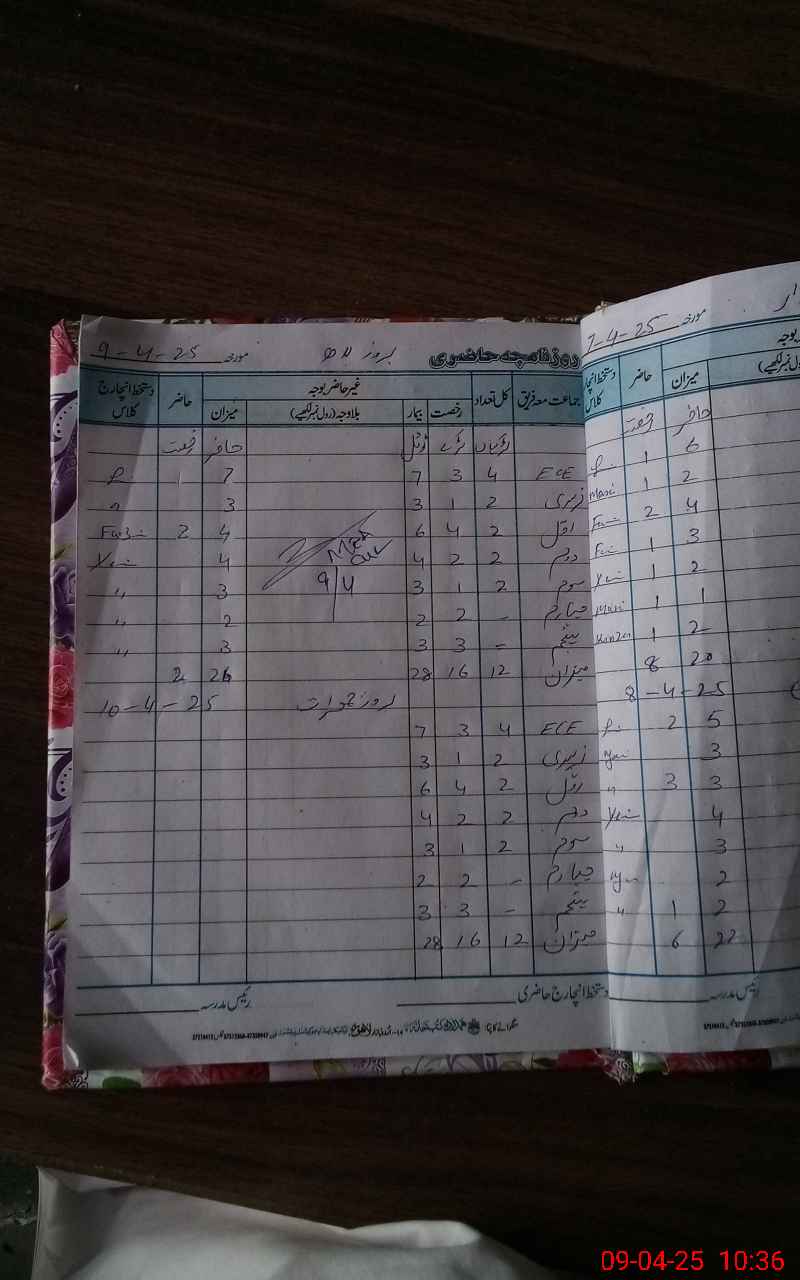 روزنامچہ حاضری بروز بدھ مورخہ 9-4-25
جماعت معہ فریق کل تعداد غیر حاضر بوجہ حاضر دستخط انچارج کلاس
رخصت بیمار بلاوجہ (رول نمبر لکھیے) میزان
لڑکیاں لڑکے ٹوٹل حاضر رخصت
ECE 4 3 7 7
نرسری 2 1 3 3 "
اول 2 4 6 4 2
دوم 2 2 4 4
سوم 2 1 3 3 "
چہارم - 2 2 2 "
پنجم - 3 3 3 "
میزان 12 16 28 26 2
9/4
بروز جمعرات 10-4-25
ECE 4 3 7
نرسری 2 1 3
اول 2 4 6
دوم 2 2 4
سوم 2 1 3
چہارم - 2 2
پنجم - 3 3
میزان 12 16 28
دستخط انچارج حاضری رئیس مدرسہ
مورخہ 7-4-25
میزان حاضر دستخط انچارج کلاس
حاضر رخصت
6 1
2 1
4 2
3 1
2 1
1 1
2 1
20 8
8-4-25
5 2
3
3 3 "
4
3 "
2
2 1 "
22 6
رئیس مدرسہ
09-04-25 10:36